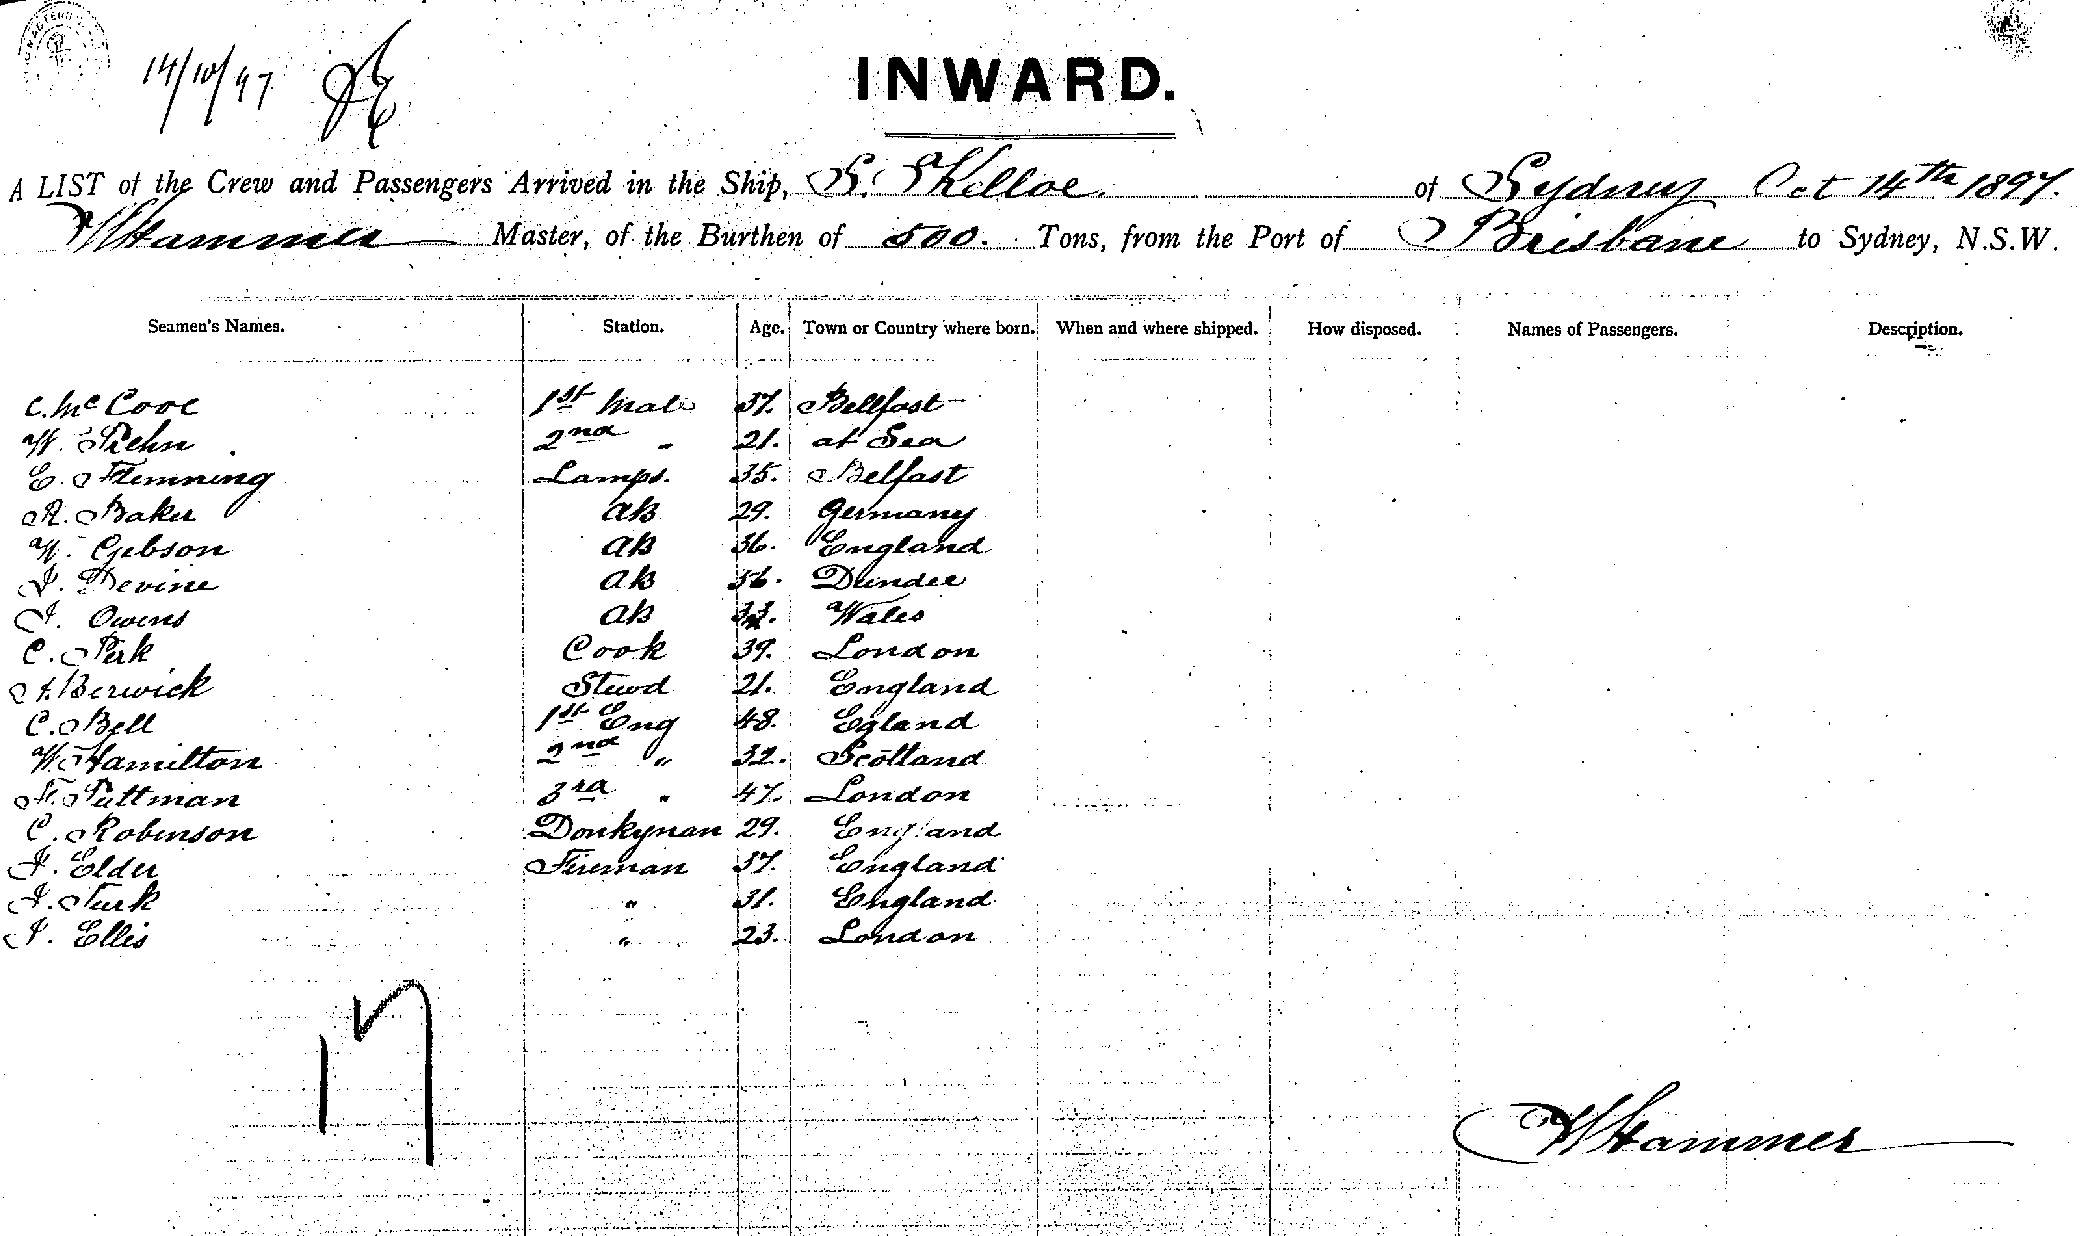 14/10/97
INWARD.
A LIST of the Crew and Passengers Arrived in the Ship, S. S Kelloe of Sydney Oct 14th 1897.
W Hammer Master, of the Burthen of 500. Tons, from the Port of Brisbane to Sydney, N.S.W.
Seamen's Names. Station. Age. Town or Country where born. When and where shipped. How disposed. Names of Passengers. Description.
C. Mc Cooe 1st Mate 37. Bellfast
W. Piehn 2nd " 21. at Sea
E. Flemming Lamps. 35. Belfast
R. Baker AB 29. Germany
W. Gibson AB 36. England
J. Devine AB 36. Dundee
J. Owens AB 33. Wales
C. Perk Cook 39. London
A. Berwick Stewd 21. England
C. Bell 1st Eng 48. Egland
W. Hamilton 2nd " 32. Scotland
H. Puttman 3rd " 47. London
C. Robinson Donkyman 29. England
J. Elder Fireman 37. England
J. Turk " 31. England
J. Ellis " 23. London
17
W Hammer